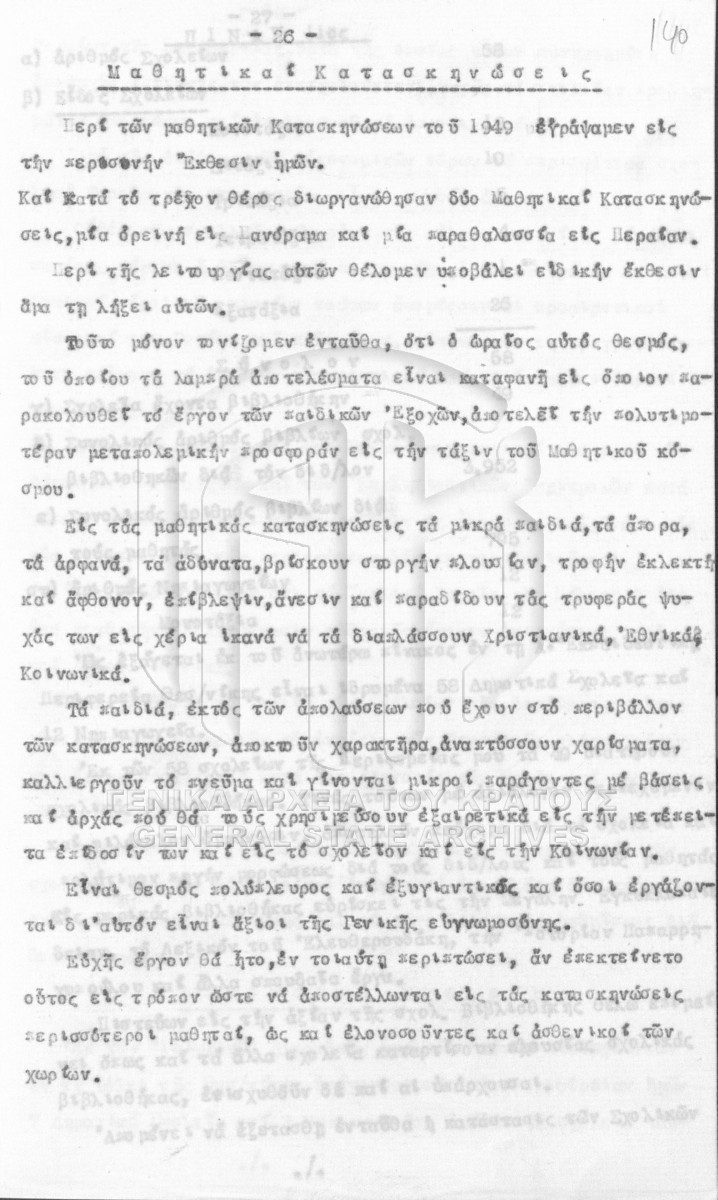 140
- 26 -
Μαθητικαί Κατασκηνώσεις
Περί τῶν μαθητικῶν Κατασκηνώσεων τοῦ 1949 ἐγράψαμεν εἰς
τήν περυσινήν Ἔκθεσιν ἡμῶν.
Καί Κατά τό τρέχον θέρος διωργανώθησαν δύο Μαθητικαί Κατασκηνώ-
σεις,μία ὀρεινή εἰς Πανόραμα καί μία παραθαλασσία εἰς Περαίαν.
Περί τῆς λειτουργίας αὐτῶν θέλομεν ὑποβάλει εἰδικήν ἔκθεσιν
ἅμα τῃ λήξει αὐτῶν.
Τοῦτο μόνον τονίζομεν ἐνταῦθα, ὅτι ὁ ὡραῖος αὐτός θεσμός,
τοῦ ὁποίου τά λαμπρά ἀποτελέσματα εἶναι καταφανῆ εἰς ὅποιον πα-
ρακολουθεῖ τό ἔργον τῶν παιδικῶν Ἐξοχῶν,ἀποτελεῖ τήν πολυτιμο-
τέραν μεταπολεμικήν προσφοράν εἰς τήν τάξιν τοῦ Μαθητικοῦ κό-
σμου.
Εἰς τάς μαθητικάς κατασκηνώσεις τά μικρά παιδιά,τά ἄπορα,
τά ὀρφανά, τά ἀδύνατα,βρίσκουν στοργήν πλουσίαν, τροφήν ἐκλεκτή
καί ἄφθονον, ἐπίβλεψιν,ἄνεσιν καί παραδίδουν τάς τρυφεράς ψυ-
χάς των εἰς χέρια ἱκανά νά τά διαπλάσσουν Χριστιανικά, Ἐθνικά
Κοινωνικά.
Τά παιδιά, ἐκτός τῶν ἀπολαύσεων πού ἔχουν στό περιβάλλον
τῶν κατασκηνώσεων, ἀποκτοῦν χαρακτῆρα,ἀναπτύσσουν χαρίσματα,
καλλιεργοῦν τό πνεῦμα καί γίνονται μικροί παράγοντες μέ βάσεις
καί ἀρχάς πού θά τούς χρησιμεύσουν ἐξαιρετικά εἰς τήν μετέπει-
τα ἐπίδοσίν των καί εἰς τό σχολεῖον καί εἰς τήν Κοινωνίαν.
Εἶναι θεσμός πολύπλευρος καί ἐξυγιαντικός καί ὅσοι ἐργάζον-
ται δι'αὐτόν εἶναι ἄξιοι τῆς Γενικῆς εὐγνωμοσύνης.
Εὐχῆς ἔργον θά ἦτο,ἐν τοιαύτῃ περιπτώσει, ἄν ἐπεκτείνετο
οὗτος εἰς τρόπον ὥστε νά ἀποστέλλωνται εἰς τάς κατασκηνώσεις
περισσότεροι μαθηταί, ὡς καί ἑλονοσοῦντες καί ἀσθενικοί τῶν
χωρίων.
./.
ΓΕΝΙΚΑ ΑΡΧΕΙΑ ΤΟΥ ΚΡΑΤΟΥΣ
GENERAL STATE ARCHIVES